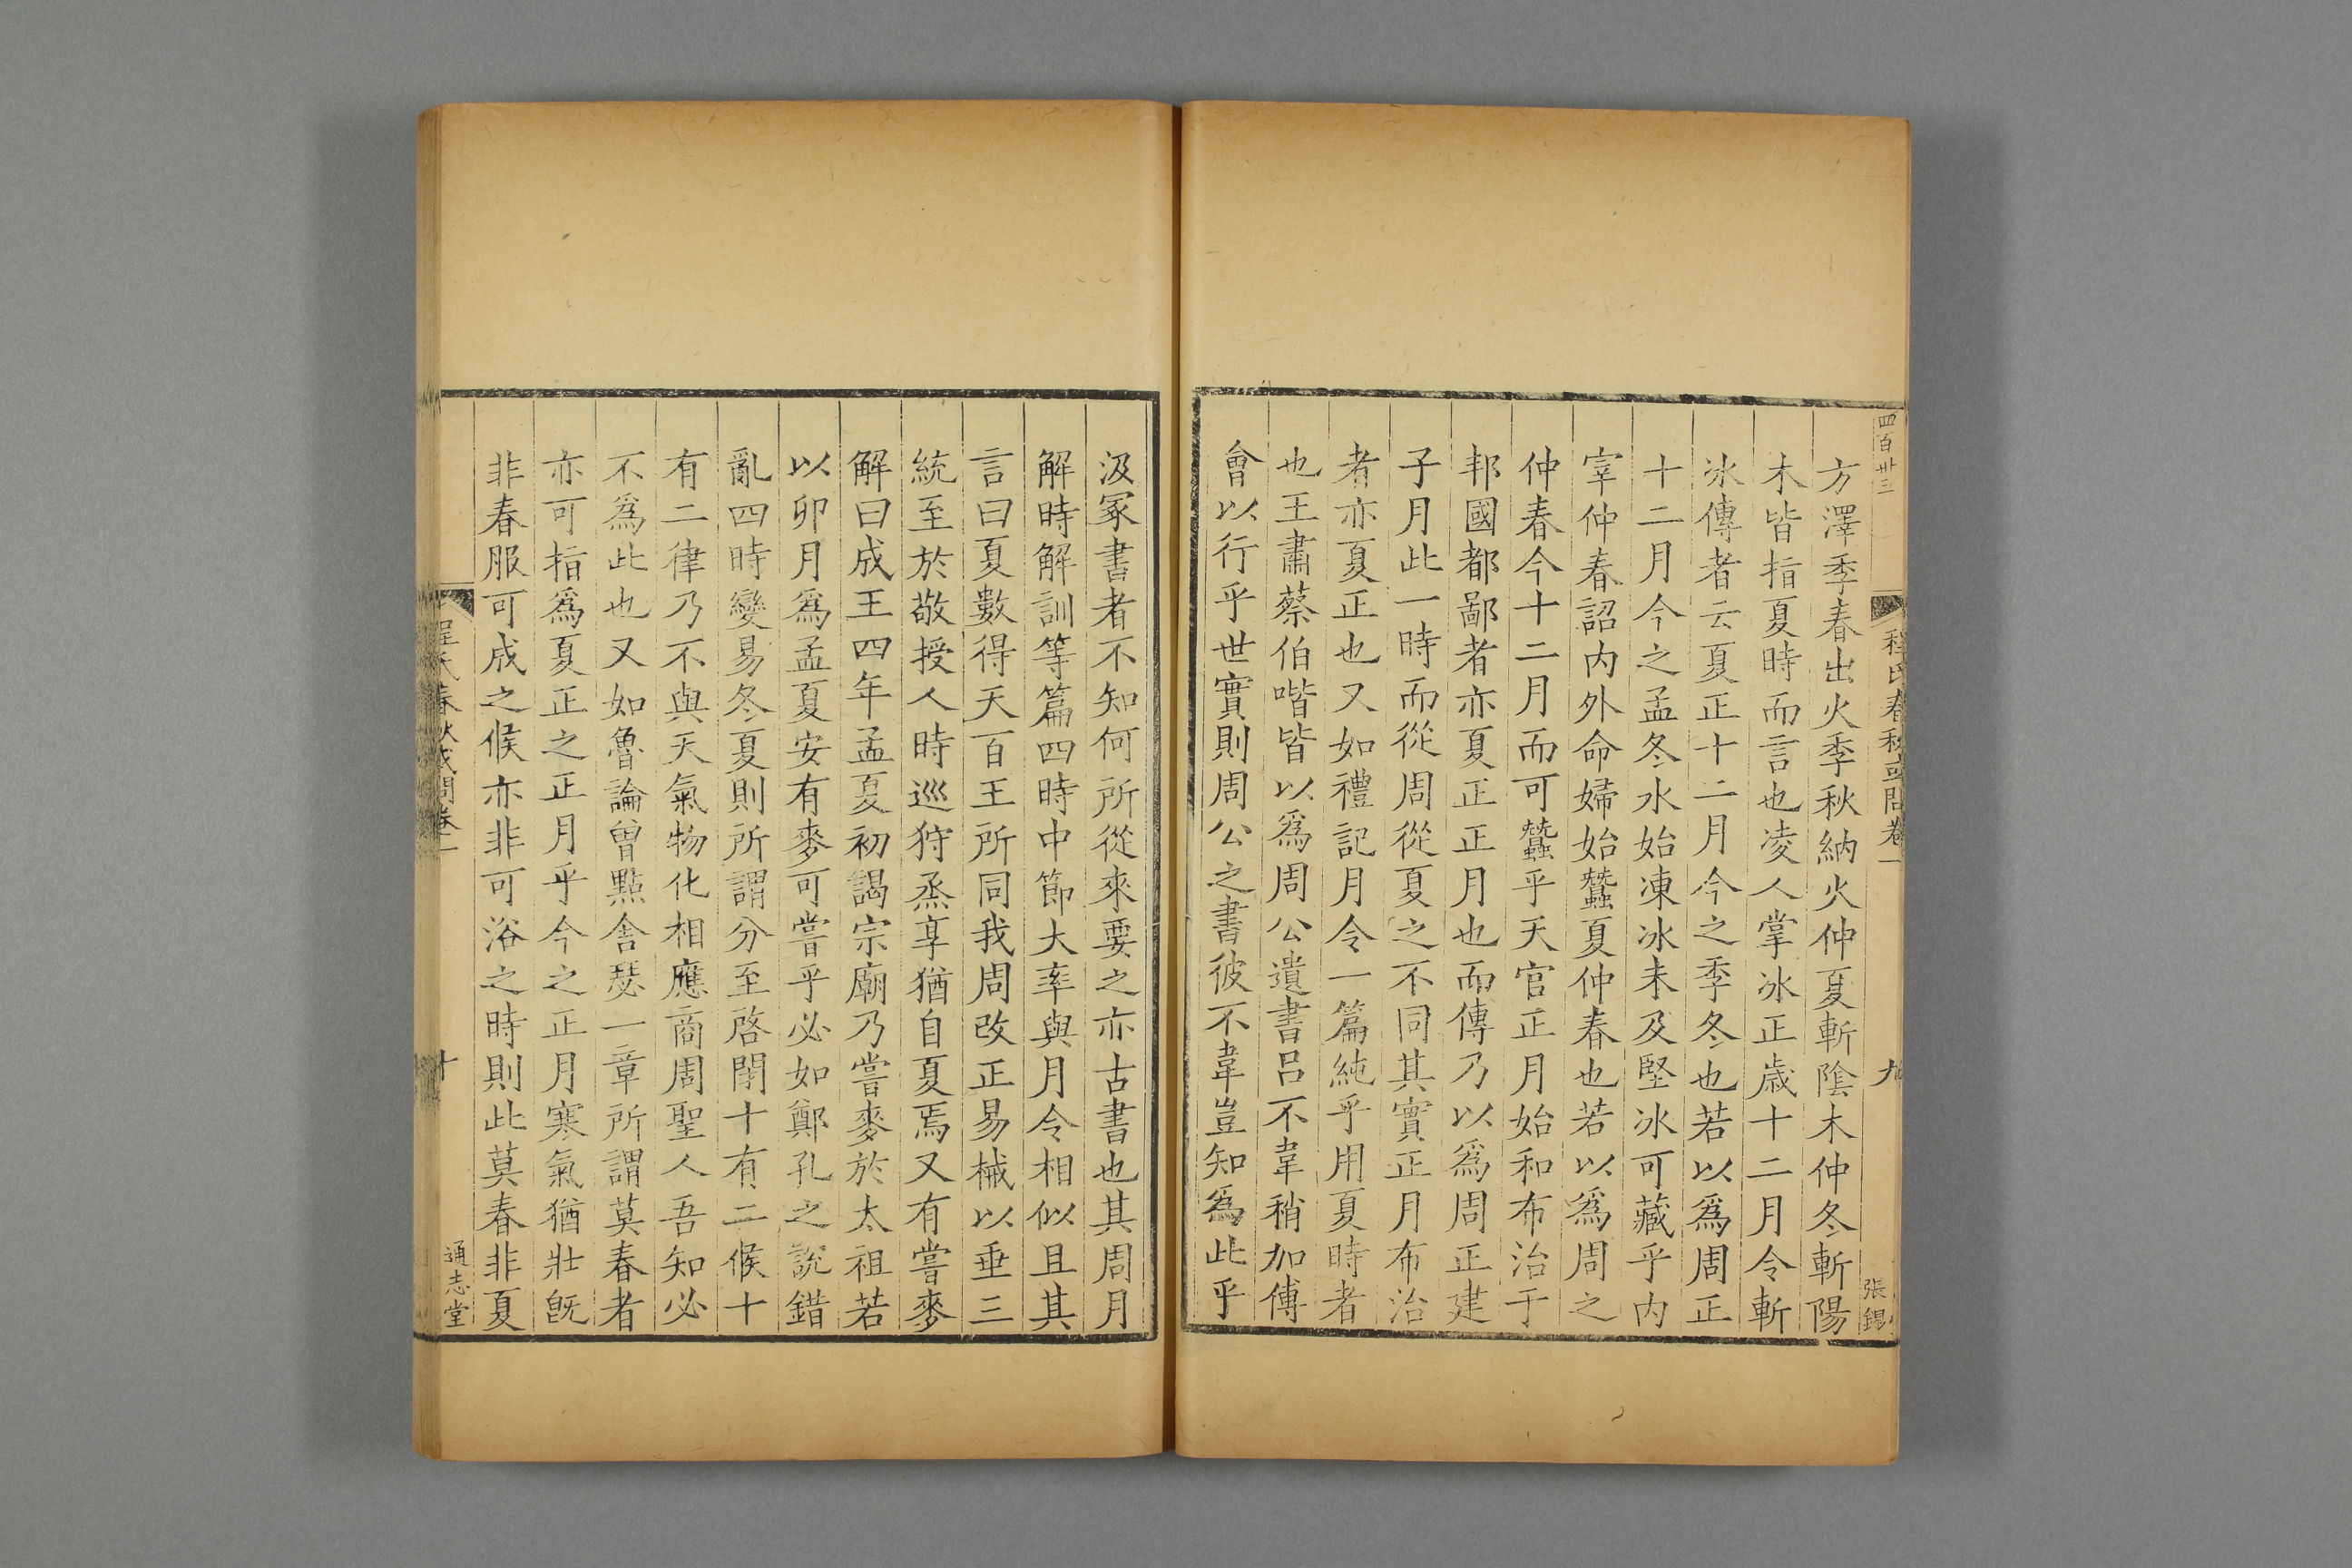 四百卅三
程氏春秋或問卷一
九
張錫
方澤季春出火季秋納火仲夏斬陰木仲冬斬陽
木皆指夏時而言也凌人掌冰正歲十二月令斬
冰傳者云夏正十二月今之季冬也若以爲周正
十二月今之孟冬水始凍冰未及堅冰可藏乎内
宰仲春詔内外命婦始蠶夏仲春也若以爲周之
仲春今十二月而可蠶乎天官正月始和布治于
邦國都鄙者亦夏正正月也而傳乃以爲周正建
子月此一時而從周從夏之不同其實正月布治
者亦夏正也又如禮記月令一篇純乎用夏時者
也王肅蔡伯喈皆以爲周公遺書呂不韋稍加傅
會以行乎世實則周公之書彼不韋豈知爲此乎
汲冢書者不知何所從來要之亦古書也其周月
解時解訓等篇四時中節大率與月令相似且其
言曰夏數得天百王所同我周改正易械以垂三
統至於敬授人時巡狩烝享猶自夏焉又有嘗麥
解曰成王四年孟夏初謁宗廟乃嘗麥於太祖若
以卯月爲孟夏安有麥可嘗乎必如鄭孔之說錯
亂四時變易冬夏則所謂分至啓閉十有二候十
有二律乃不與天氣物化相應商周聖人吾知必
不爲此也又如魯論曾點舍瑟一章所謂莫春者
亦可指爲夏正之正月乎今之正月寒氣猶壯旣
非春服可成之候亦非可浴之時則此莫春非夏
程氏春秋或問卷一
十
通志堂